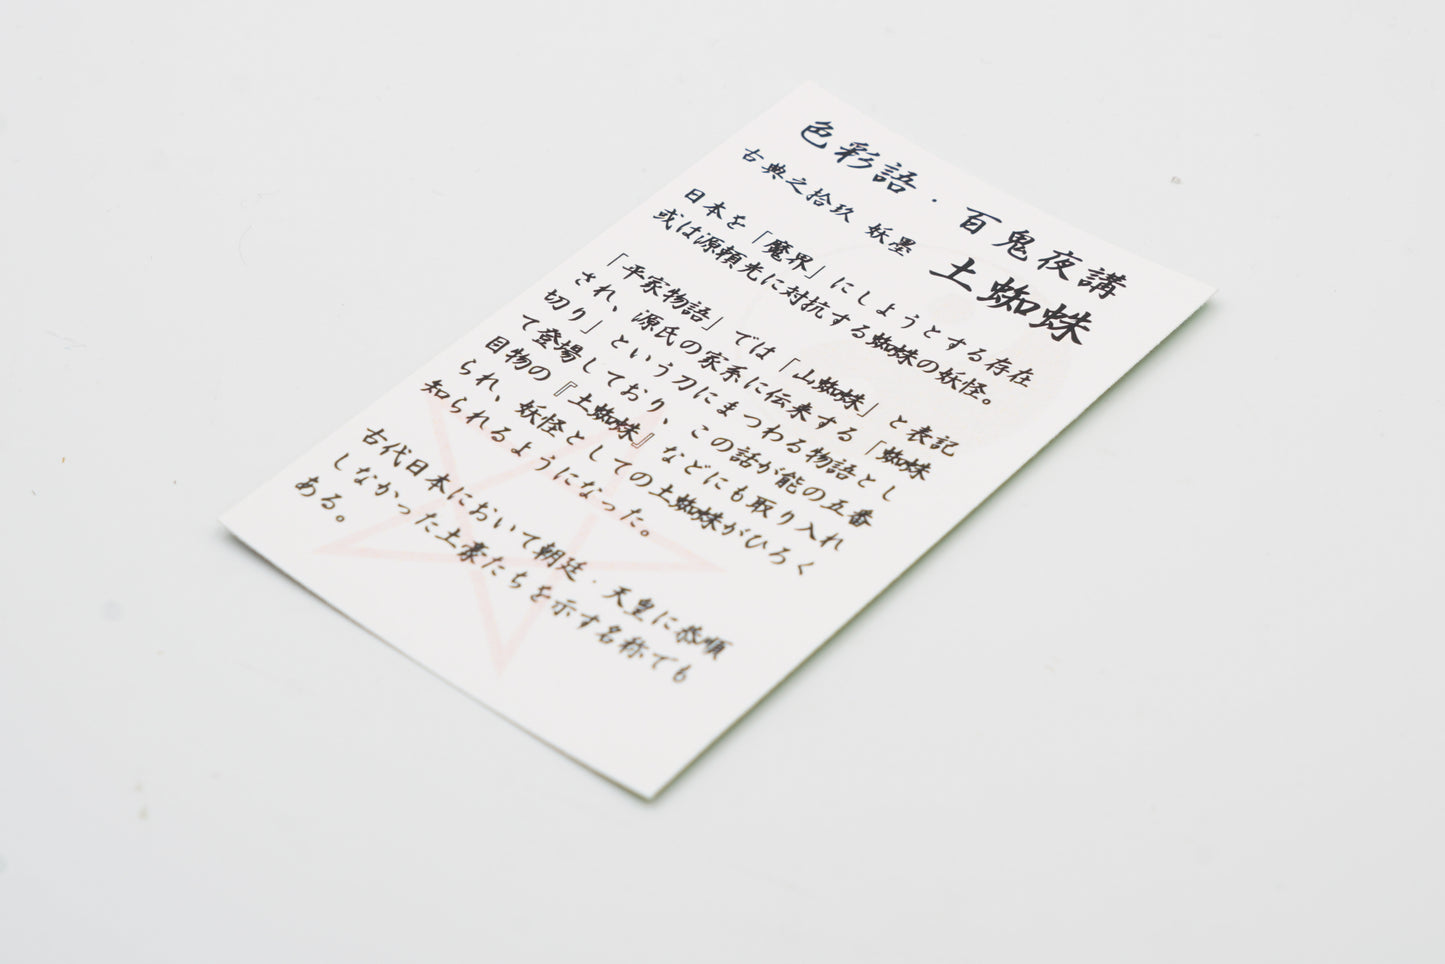 色彩語・百鬼夜講
古典之拾玖 妖墨 土蜘蛛
日本を「魔界」にしようとする存在
或は源頼光に対抗する蜘蛛の妖怪。
「平家物語」では「山蜘蛛」と表記
され、源氏の家系に伝来する「蜘蛛
切り」という刀にまつわる物語とし
て登場しており、この話が能の五番
目物の『土蜘蛛』などにも取り入れ
られ、妖怪としての土蜘蛛がひろく
知られるようになった。
古代日本において朝廷・天皇に恭順
しなかった土豪たちを示す名称でも
ある。